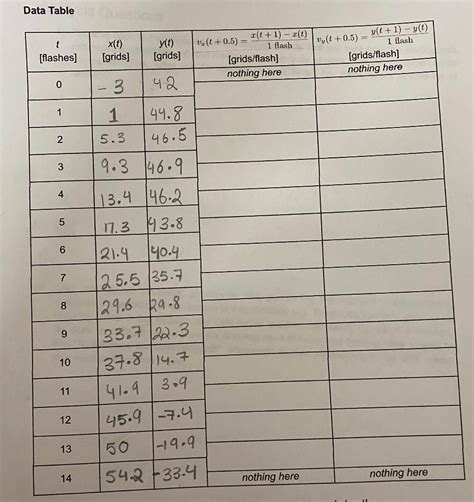 Data Table
t [flashes] x(t) [grids] y(t) [grids] vx(t + 0.5) = x(t + 1) − x(t) / 1 flash [grids/flash] vy(t + 0.5) = y(t + 1) − y(t) / 1 flash [grids/flash]
nothing here nothing here
0 -3 42
1 1 44.8
2 5.3 46.5
3 9.3 46.9
4 13.4 46.2
5 17.3 43.8
6 21.4 40.4
7 25.5 35.7
8 29.6 29.8
9 33.7 22.3
10 37.8 14.7
11 41.9 3.9
12 45.9 -7.4
13 50 -19.9
14 54.2 -33.4 nothing here nothing here